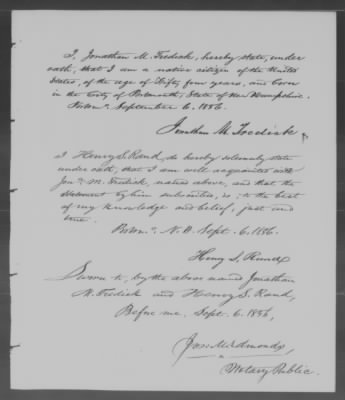 I, Jonathan M. Tredick, hereby state, under
oath, that I am a native citizen of the United
States, of the age of Fifty four years, and born
in the City of Portsmouth, State of New Hampshire.
September 6. 1856.
Jonathan M. Tredick
I Henry S. Rand, do hereby solemnly state
under oath, that I am well acquainted with
Jonn. M. Tredick, named above, and that the
statement by him subscribed, is, to the best
of my knowledge and belief, just and
true.
N.H. Sept. 6. 1856.
Henry S. Rand
Sworn to, by the above named Jonathan
M. Tredick and Henry S. Rand,
Before me. Sept. 6. 1856,
Edmonds,
a
Notary Public.